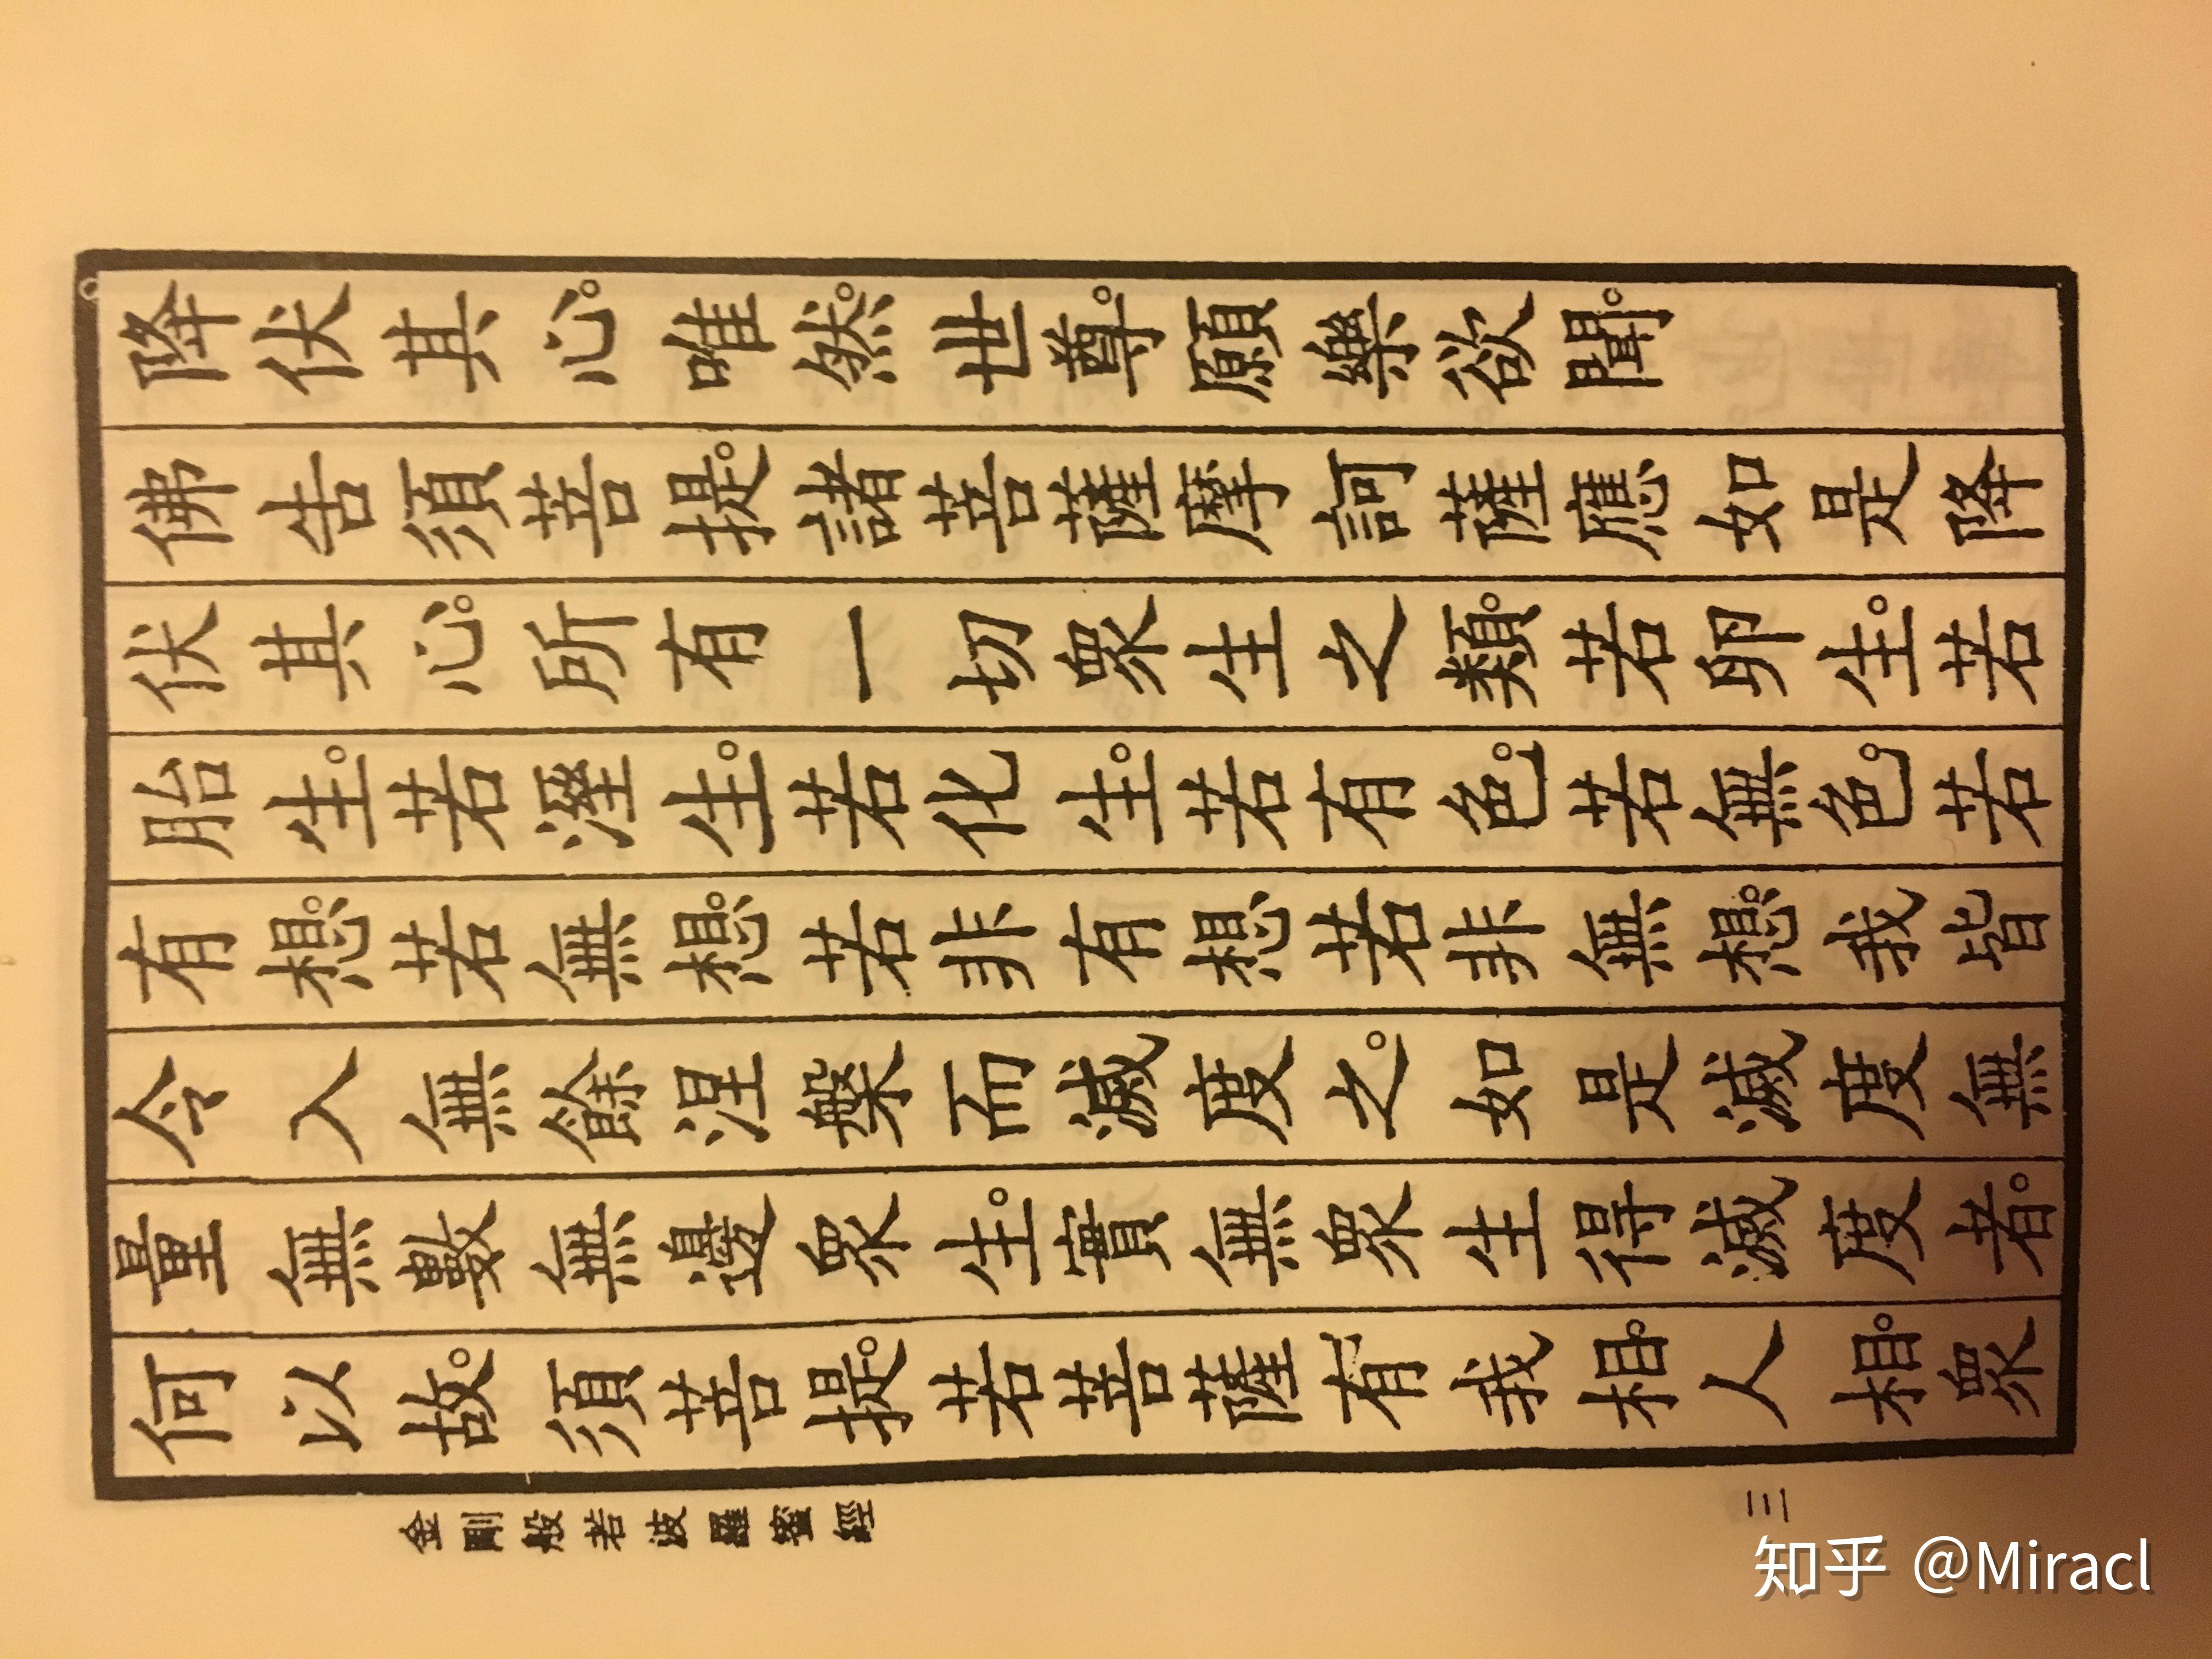 降伏其心。唯然。世尊。願樂欲聞。
佛告須菩提。諸菩薩摩訶薩應如是降
伏其心。所有一切衆生之類。若卵生。若
胎生。若溼生。若化生。若有色。若無色。若
有想。若無想。若非有想若非無想。我皆
令入無餘涅槃而滅度之。如是滅度無
量無數無邊衆生。實無衆生得滅度者。
何以故。須菩提。若菩薩有我相。人相。衆
金剛般若波羅蜜經
三
知乎 @Miracl